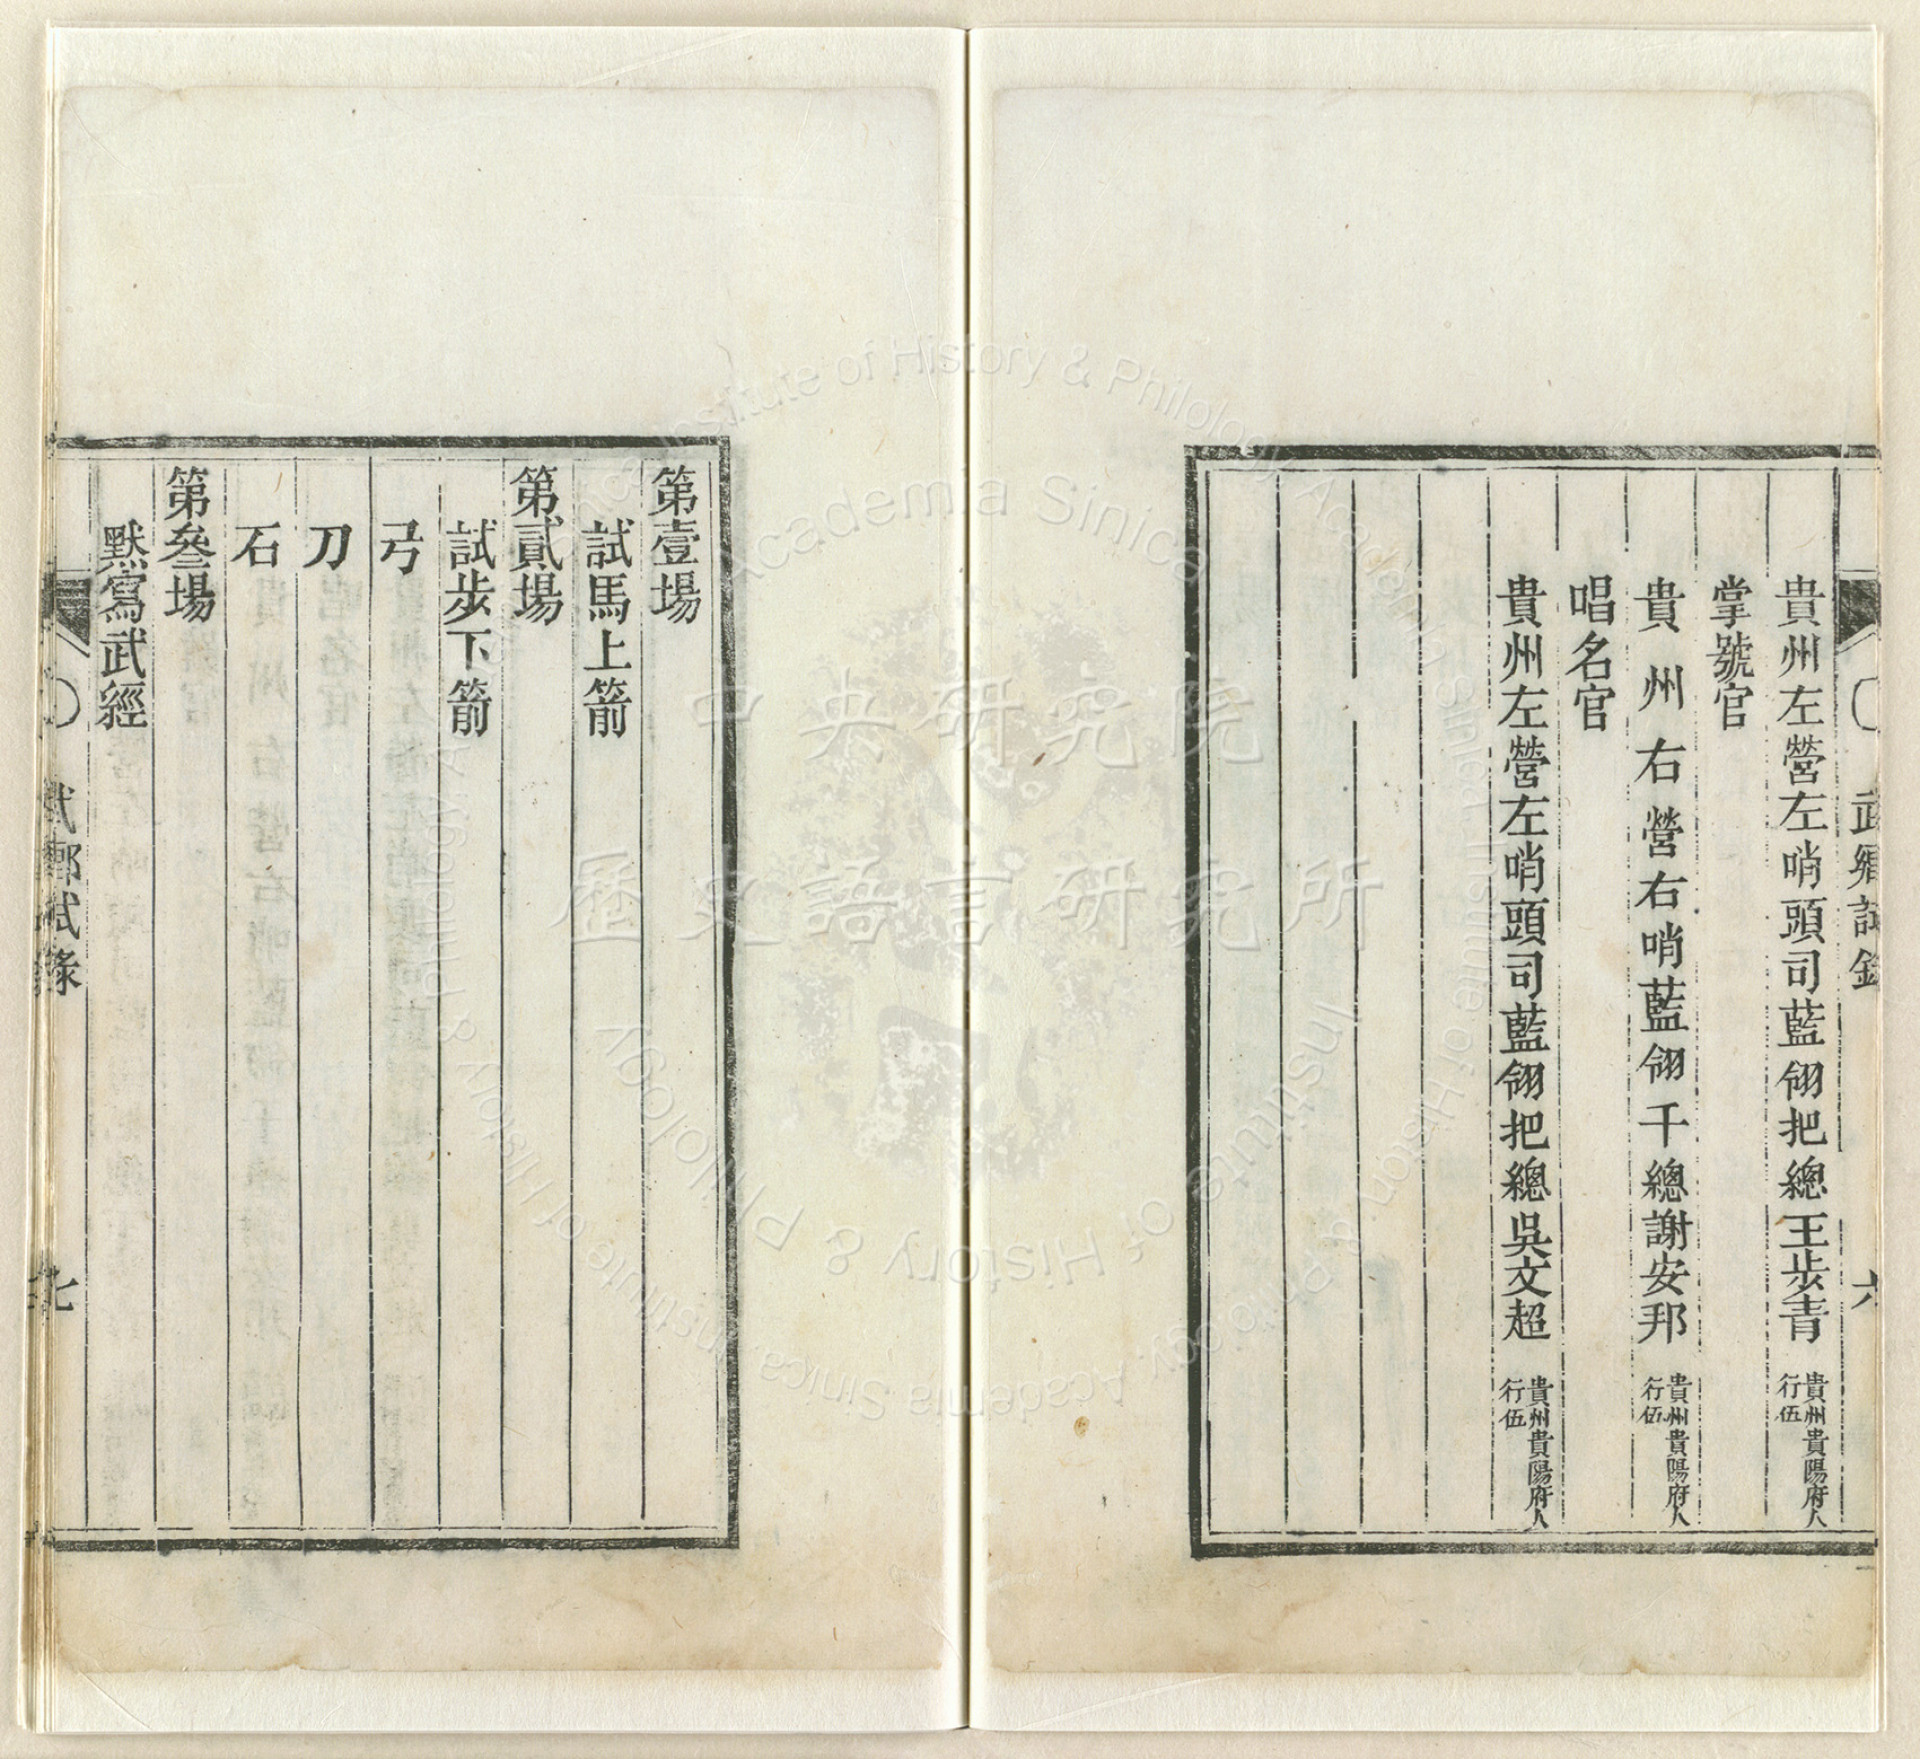 武鄉試錄
六
貴州左營左哨頭司藍翎把總王步青 貴州貴陽府人行伍
掌號官
貴州右營右哨藍翎千總謝安邦 貴州貴陽府人行伍
唱名官
貴州左營左哨頭司藍翎把總吳文超 貴州貴陽府人行伍
第壹場
試馬上箭
第貳場
試步下箭
弓
刀
石
第叄場
默寫武經
武鄉試錄
七
中央研究院
歷史語言研究所
Institute of History & Philology Academia Sinica